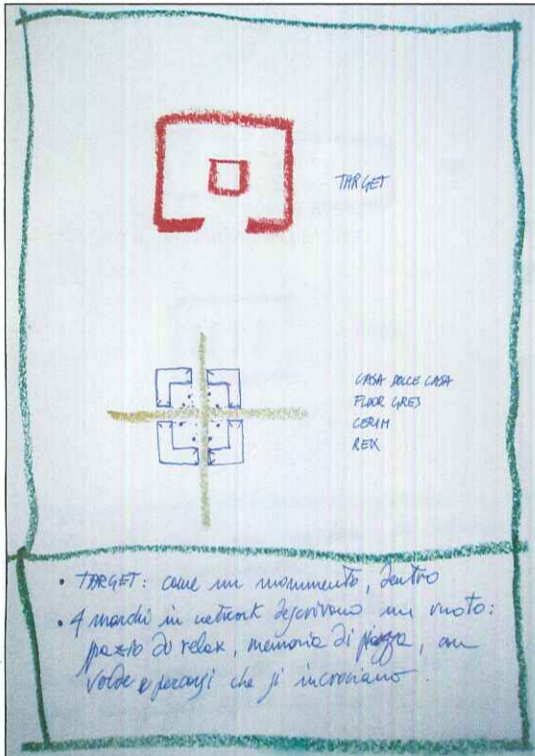 TARGET
CASA DOLCE CASA
FLOOR GRES
CERIM
REX
• TARGET: come un monumento, dentro
• 4 marchi in network descrivono un vuoto:
spazio di relax, memoria di piazza, con
verde e percorsi che si incrociano.